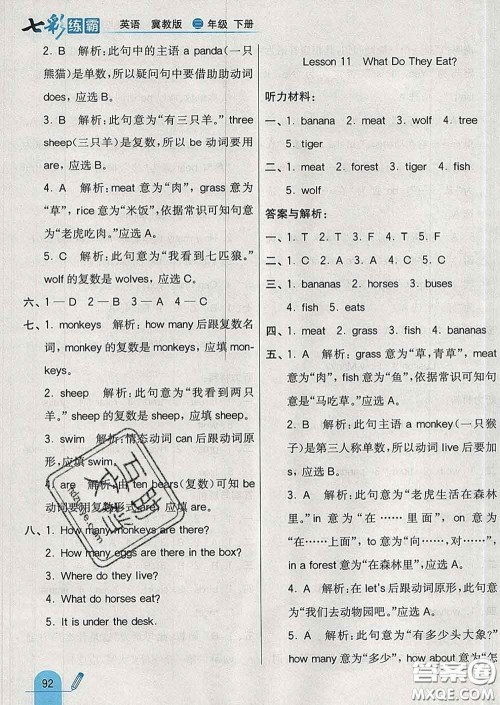 七彩练霸 英语 冀教版 三年级 下册
2. B 解析:此句中的主语 a panda(一只
熊猫)是单数,所以疑问句中要借助助动词
does,应选B。
3. B 解析:此句意为“有三只羊。”three
sheep(三只羊)是复数,所以 be 动词要用
are,应选 B。
4. A 解析:meat 意为“肉”,grass 意为
“草”,rice 意为“米饭”,依据常识可知句意
为“老虎吃肉。”应选A。
5. C 解析:此句意为“我看到七匹狼。”
wolf 的复数是 wolves,应选 C。
六、1—D 2—B 3—A 4—C
七、1. monkeys 解析:how many 后跟复数名
词,monkey 的复数是 monkeys,应填 mon-
keys。
2. sheep 解析:此句意为“我看到两只
羊。”sheep 的复数是 sheep,应填 sheep。
3. swim 解析:情态动词 can 后跟动词原
形,应填 swim。
4. are 解析:由 ten bears(复数)可知 be
动词要用复数形式 are,应填 are。
八、1. How many monkeys are there?
2. How many eggs are there in the box?
3. Where do they live?
4. What do horses eat?
5. It is under the desk.
92
Lesson 11 What Do They Eat?
听力材料:
一、1. banana 2. meat 3. wolf 4. tree
5. tiger
二、1. meat 2. forest 3. tiger 4. fish
5. wolf
答案与解析:
一、1. T 2. T 3. F 4. T 5. F
二、1. C 2. A 3. A 4. B 5. A
三、1. bananas 2. horses 3. buses
4. fish 5. eats
四、1. meat 2. grass 3. fish 4. bananas
五、1. A 解析:grass 意为“草,青草”,meat
意为“肉”,fish 意为“鱼”,依据常识可知句
意是“马吃草。”应选A。
2. A 解析:此句主语 a monkey(一只猴
子)是第三人称单数,所以动词 live 后要加
s,应选 A。
3. A 解析:此句意为“老虎生活在森林
里。”in 意为“在……里面”,on 意为
“在……上面”,to 意为“向……,对……”,
in a forest 意为“在森林里”,应选 A。
4. A 解析:在 let's 后跟动词原形,此句意
为“我们去动物园吧。”应选 A。
5. A 解析:此句意为“有多少头大象?”
how many 意为“多少”,how about 意为“怎
互助文档
答案圈
MXQE.COM